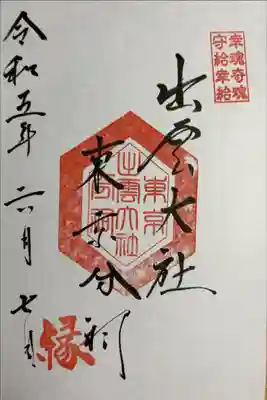 幸魂奇魂
守給幸給
出雲大社
東京分祠
東京
出雲大社
令和五年六月七日
縁